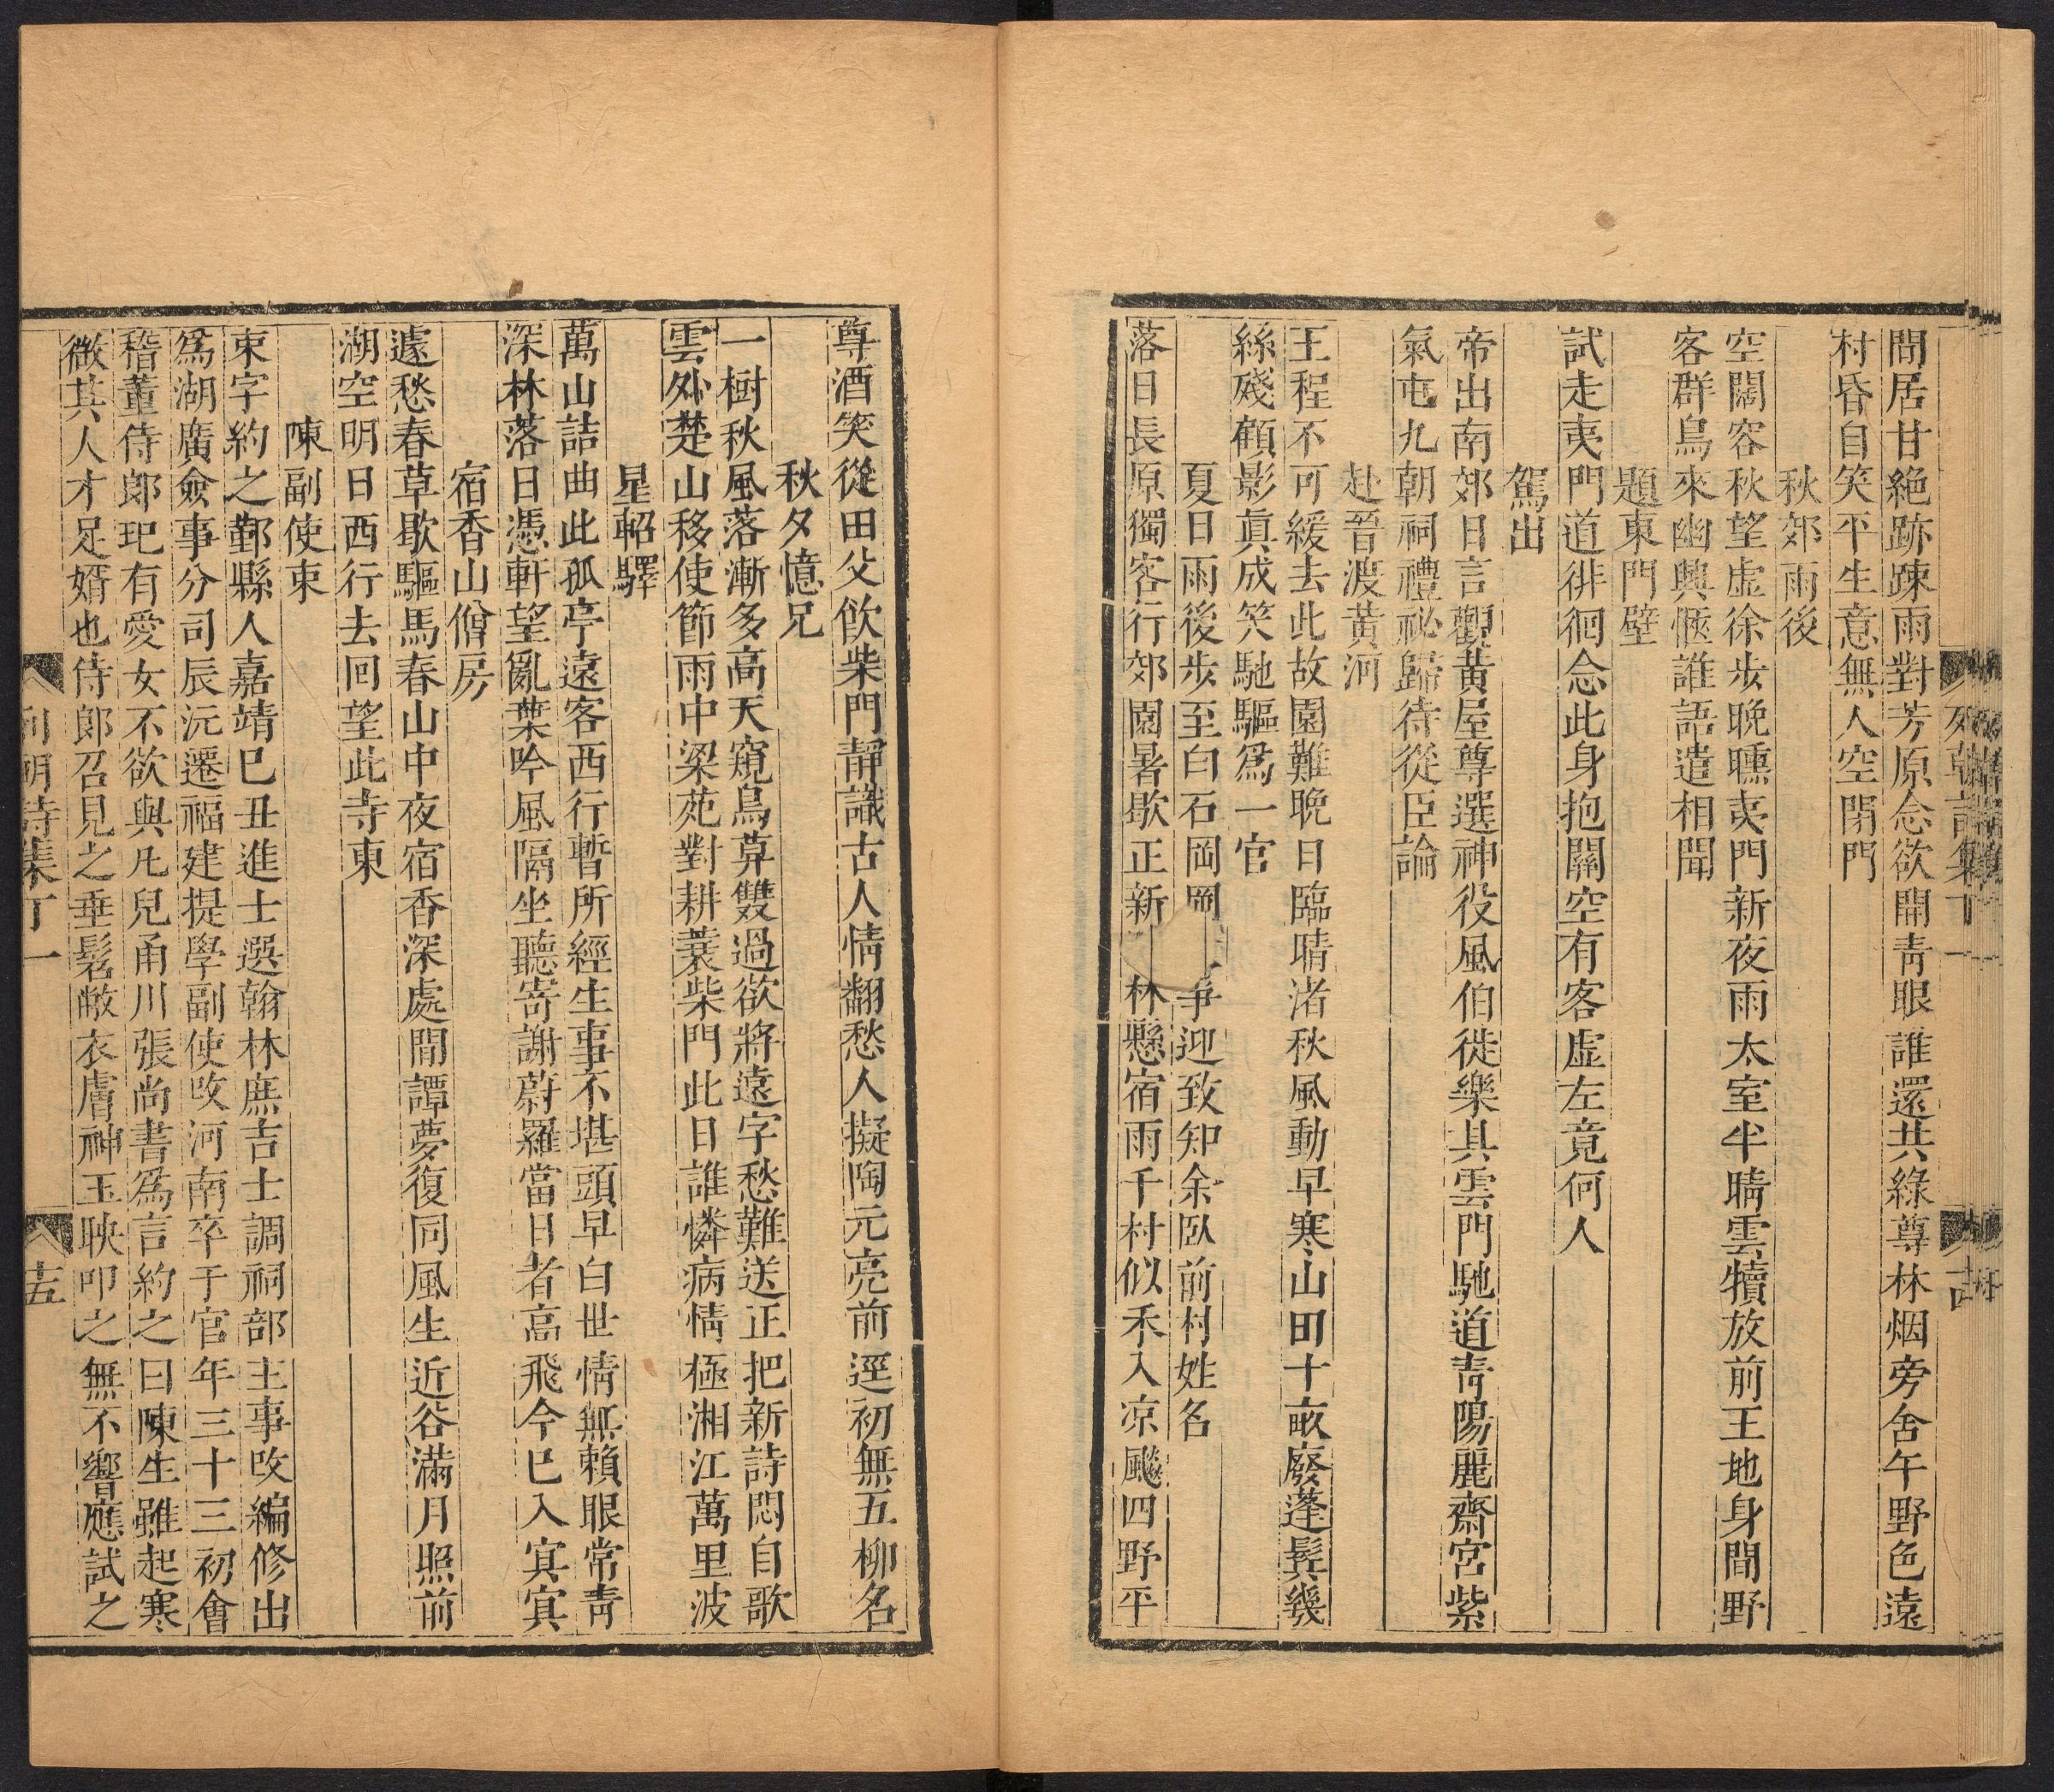 列朝詩集丁一
十四
閒居甘絶跡踈雨對芳原念欲開靑眼誰還共綠尊林烟旁舍午野色遠
村昏自笑平生意無人空閉門
秋郊雨後
空闊容秋望虛徐步晩曛夷門新夜雨太室半晴雲犢放前王地身閒野
客群鳥來幽興愜誰語遣相聞
題東門壁
試走夷門道徘徊念此身抱關空有客虛左竟何人
駕出
帝出南郊日言觀黃屋尊選神役風伯徙樂具雲門馳道靑陽麗齋宮紫
氣屯九朝祠禮祕歸待從臣論
赴晉渡黃河
王程不可緩去此故園難晩日臨晴渚秋風動早寒山田十畝廢蓬鬂幾
絲殘顧影眞成笑馳驅爲一官
夏日雨後步至白石岡爭迎致知余臥前村姓名
落日長原獨客行郊園暑歇正新林懸宿雨千村似禾入凉飈四野平
尊酒笑從田父飮柴門靜識古人情翻愁人擬陶元亮前逕初無五柳名
秋夕憶兄
一樹秋風落漸多高天窺鳥草雙過欲將遠字愁難送正把新詩悶自歌
雲外楚山移使節雨中梁苑對耕蓑柴門此日誰憐病情極湘江萬里波
星軺驛
萬山詰曲此孤亭遠客西行暫所經生事不堪頭早白世情無賴眼常靑
深林落日憑軒望亂葉吟風隔坐聽寄謝蔚羅當日者高飛今已入寘寘
宿香山僧房
遽愁春草歇驅馬春山中夜宿香深處閒譚夢復同風生近谷滿月照前
湖空明日西行去回望此寺東
陳副使束
束字約之鄞縣人嘉靖巳丑進士選翰林庶吉士調祠部主事改編修出
爲湖廣僉事分司辰沅遷福建提學副使改河南卒于官年三十三初會
稽董侍郞玘有愛女不欲與凡兒甬川張尚書爲言約之曰陳生雖起寒
微其人才足婿也侍郞召見之垂髫敝衣膚神玉映叩之無不響應試之
列朝詩集丁一
十五